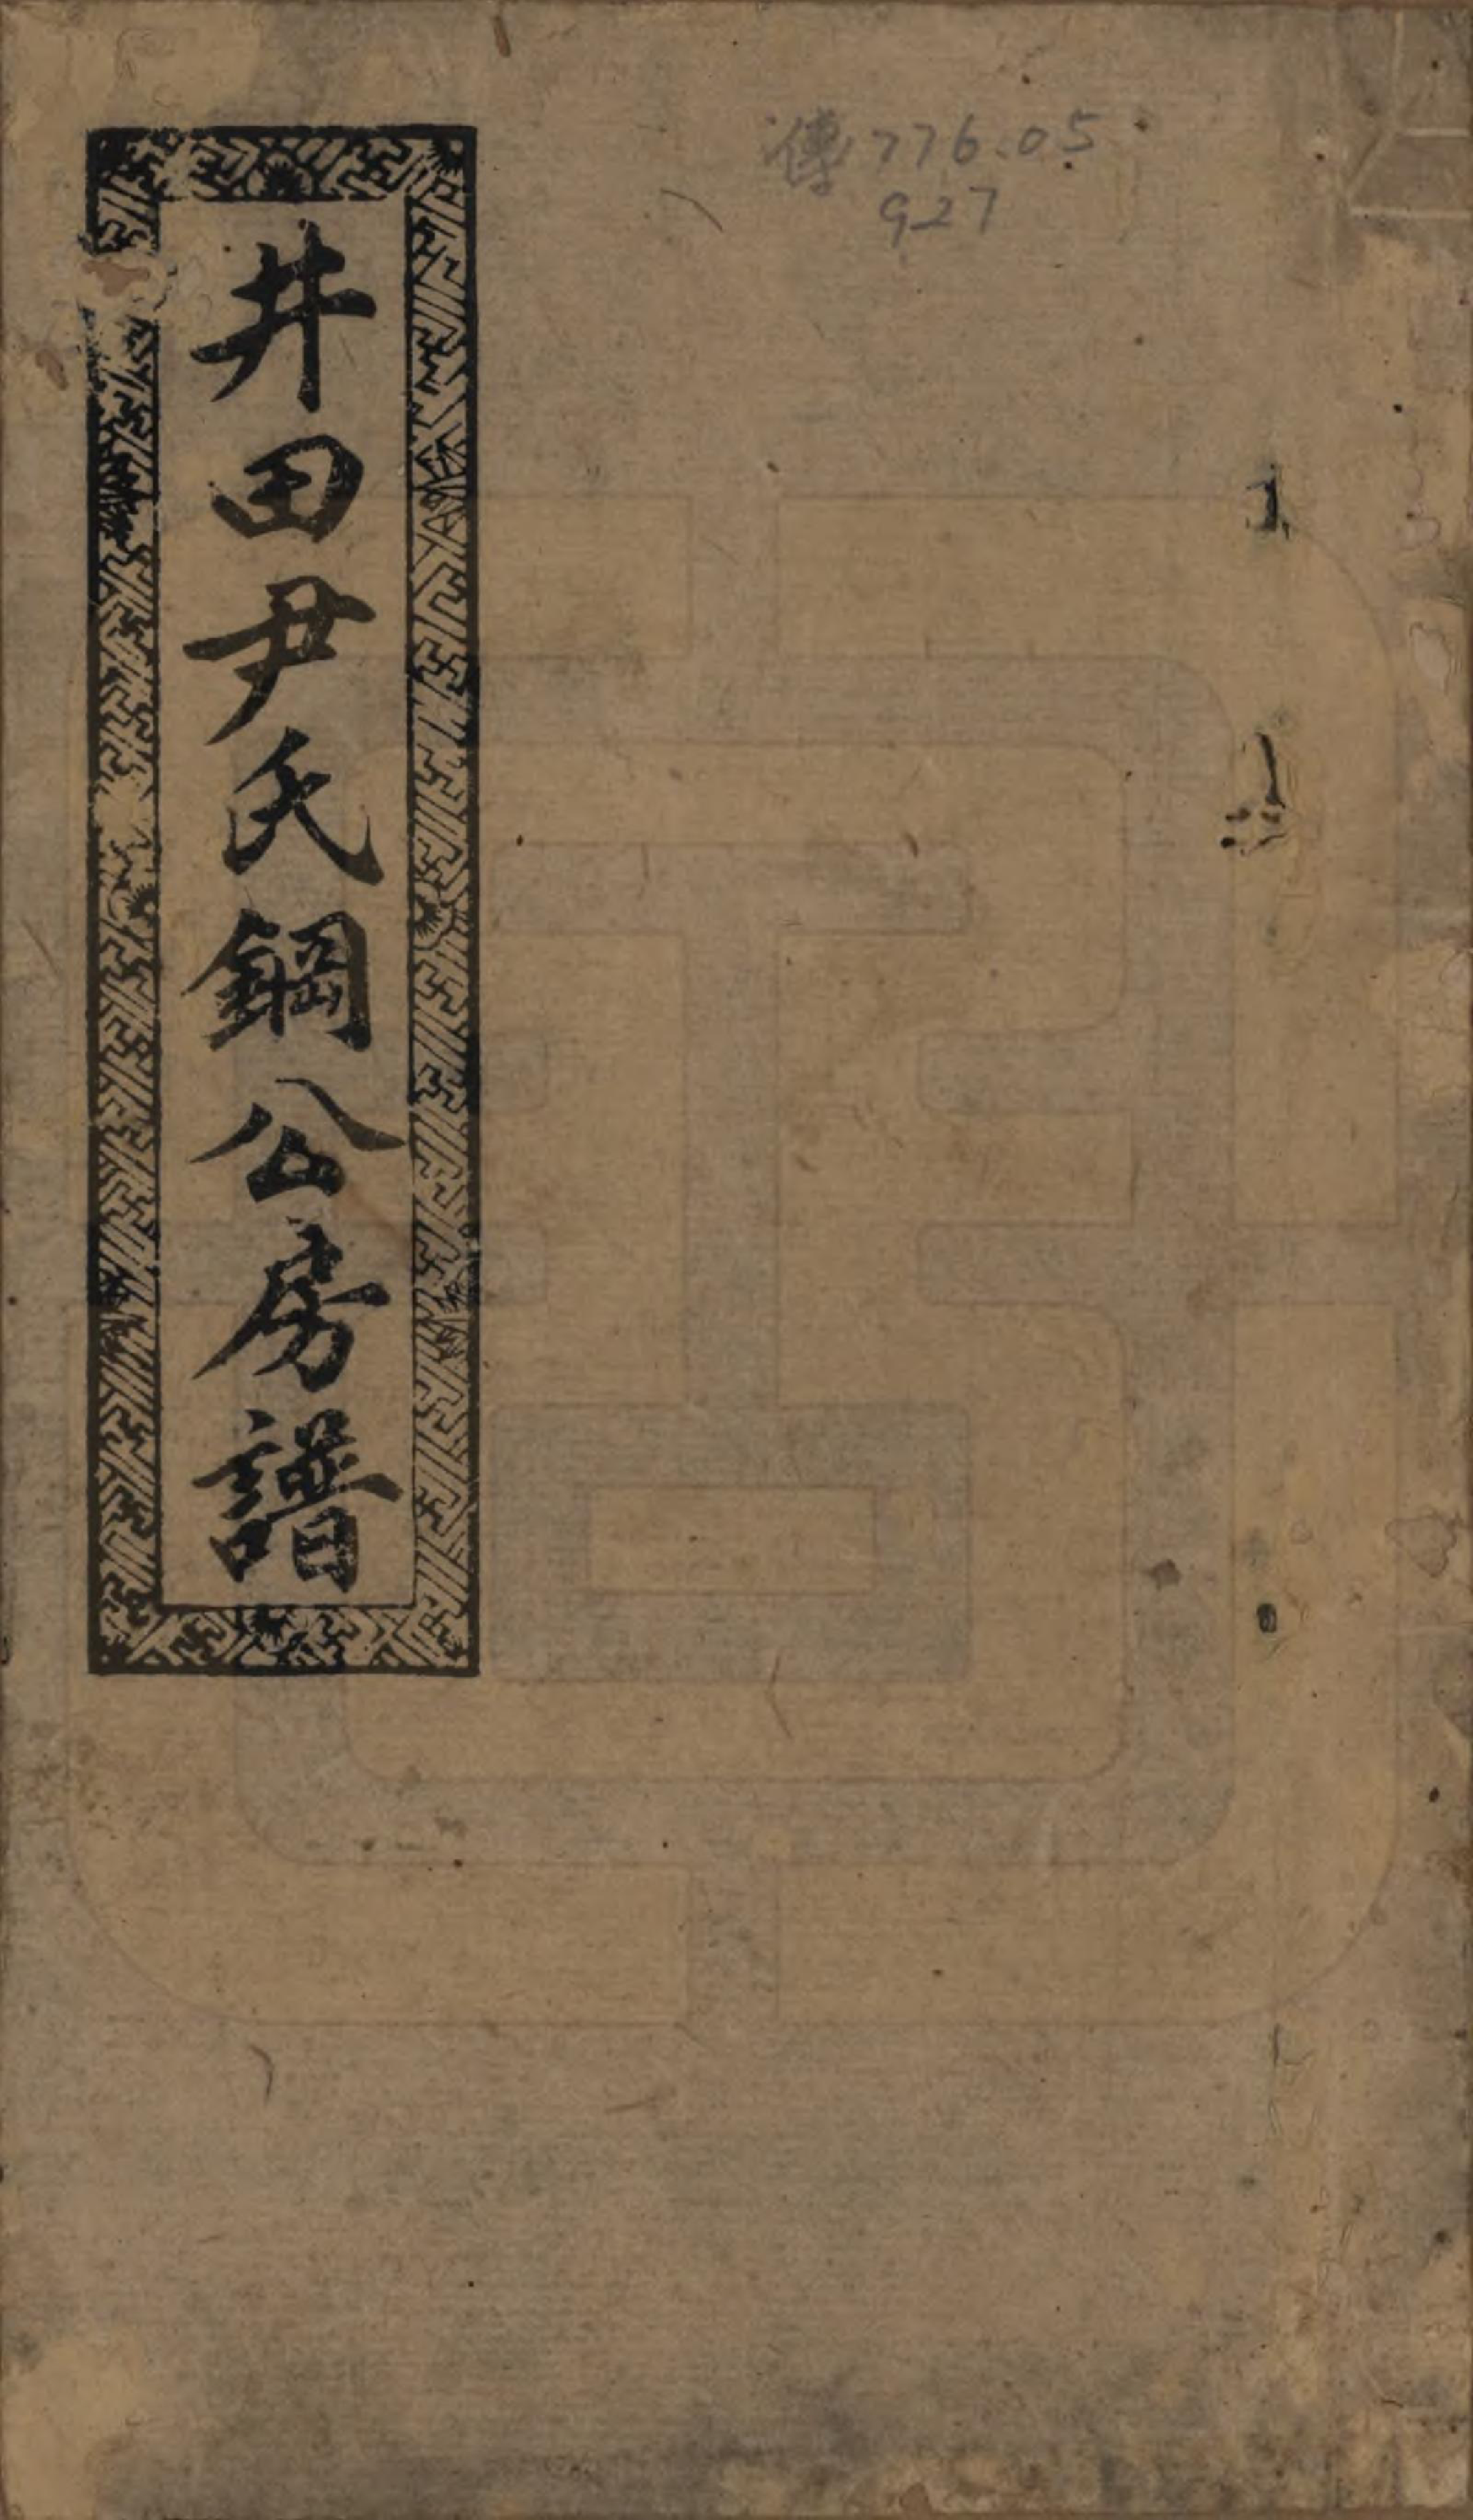 傳776.05
927
井田尹氏鋼公房譜